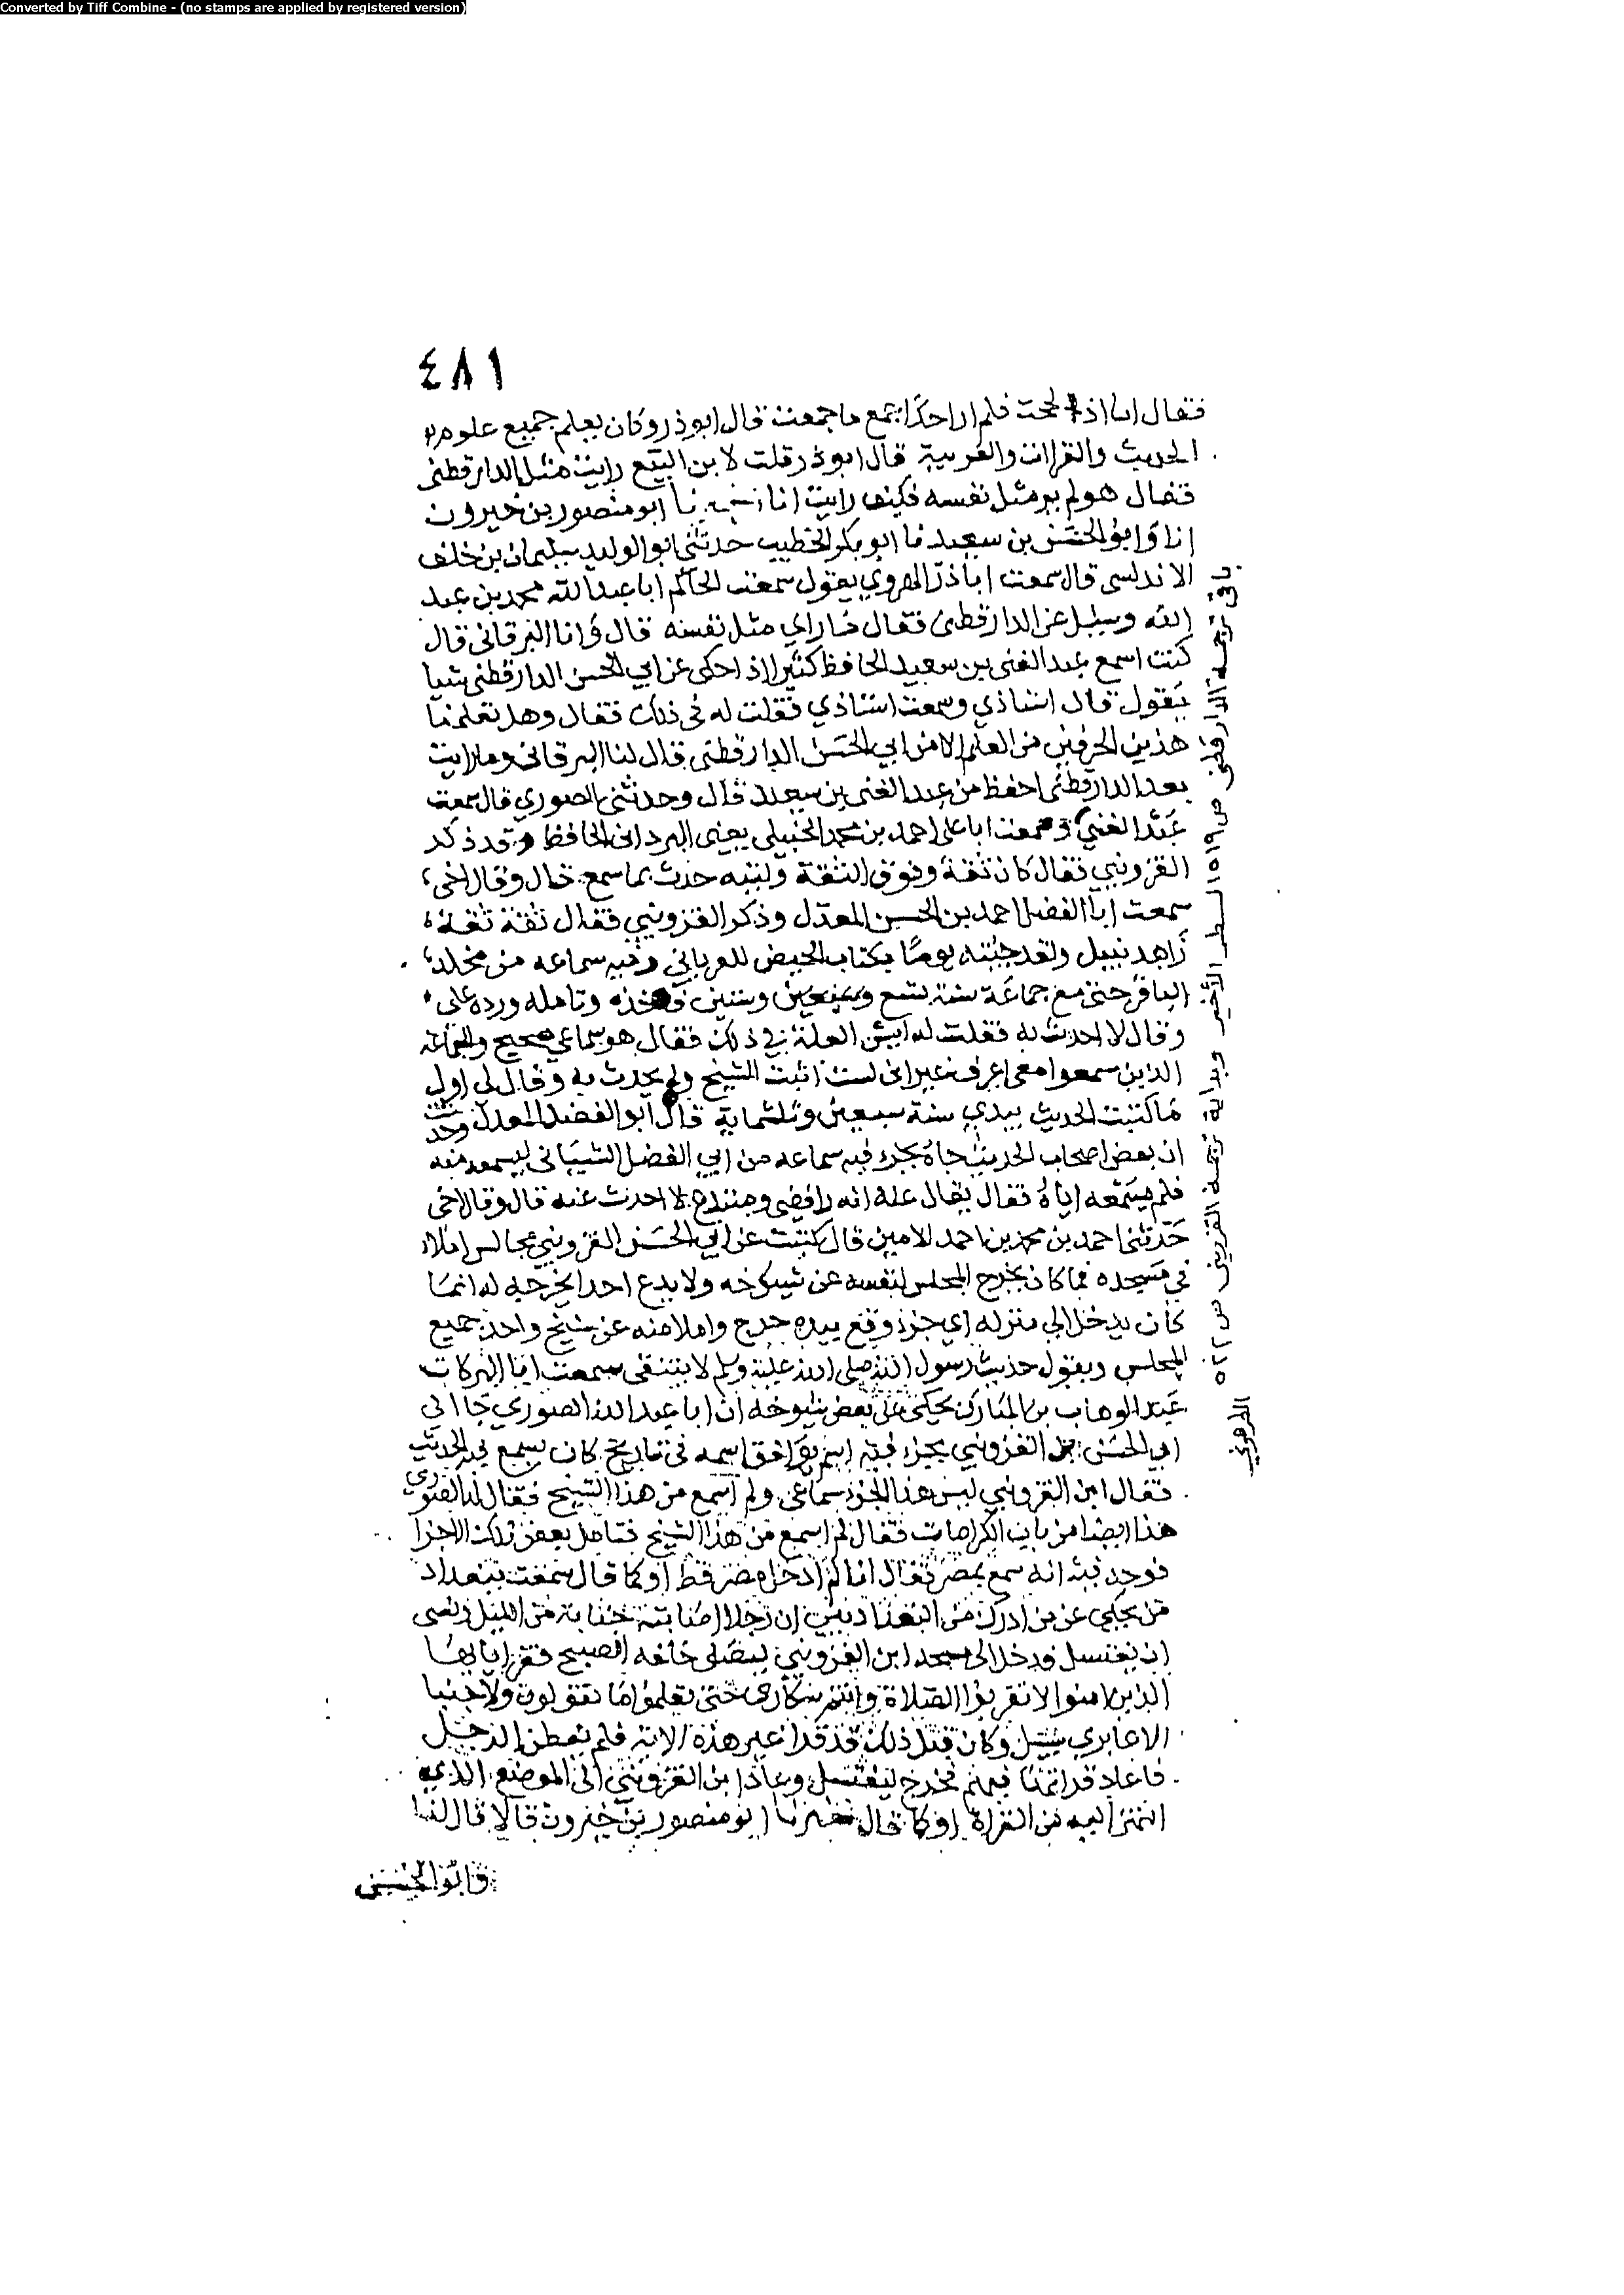 Converted by Tiff Combine - (no stamps are applied by registered version)
٤٨١
فقال اذا لححت فلم ار احدا جمع ما جمعت قال ابو ذر وكان يعلم جميع علوم
الحديث والقراات والعربية قال ابو ذر قلت لابن البيع رايت مثل الدارقطني
فقال هو لم ير مثل نفسه فكيف رايت انا ابو منصور بن خيرون
انا وابو الحسن بن سعيد نا ابو بكر الخطيب حدثني ابو الوليد سليمان بن خلف
الاندلسي قال سمعت ابا ذر الهروي يقول سمعت الحاكم ابا عبد الله محمد بن عبد
الله وسئل عن الدارقطني فقال ما راي مثل نفسه قال وانا البرقاني قال
كنت اسمع عبد الغني بن سعيد الحافظ كثيرا اذا حكى عن ابي الحسن الدارقطني شيا
يقول قال استاذي وسمعت استاذي فقلت له في ذلك فقال وهل تعلمنا
هذين الحرفين من العلم الا من ابي الحسن الدارقطني قال لنا البرقاني وما رايت
بعد الدارقطني احفظ من عبد الغني بن سعيد قال وحدثني الصوري قال سمعت
عبد الغني وسمعت ابا علي احمد بن محمد الحنبلي يعني البرداني الحافظ وقد ذكر
القزويني فقال كان ثقة وفوق الثقة وليته حدث بما سمع قال وقال اخي
سمعت ابا الفضل احمد بن الحسن المعدل وذكر القزويني فقال ثقة ثقة
زاهد نبيل ولقد جئته يوما بكتاب الحيض للفريابي وفيه سماعه من مخلد
الباقرحي مع جماعة سنة تسع وستين فاخذه وتامله ورده علي
وقال لا احدث به فقلت له ايش العلة في ذلك فقال هو سماعي صحيح والجماعة
الذين سمعوا معي اعرف غير اني لست اثبت الشيخ ولم يحدث به وقال لي اول
ما كتبت الحديث بيدي سنة سبعين وثلثماية قال ابو الفضل المعدل وحدثت
ان بعض اصحاب الحديث جاه بجزء فيه سماعه من ابي الفضل الشيباني ليسمعه منه
فلم يسمعه اياه فقال يقال عنه انه رافضي ومبتدع لا احدث عنه قال وقال اخي
حدثني احمد بن محمد بن احمد الامين قال كتبت عن ابي الحسن القزويني مجالس املاء
في مسجده فما كان يخرج المجلس لنفسه عن شيوخه ولا يدع احدا يخرجه له انما
كان يدخل الى منزله اي جزء وقع بيده خرج واملا منه عن شيخ واحد جميع
المجلس ويقول حديث رسول الله صلى الله عليه وسلم لا ينتقى سمعت ابا البركات
عبد الوهاب بن المبارك يحكي عن بعض شيوخه ان ابا عبد الله الصوري جا الي
ابي الحسن القزويني بجزء فيه اسم يوافق اسمه في تاريخ كان يسمع فيه الحديث
فقال ابن القزويني ليس هذا الجزء سماعي ولم اسمع من هذا الشيخ فقال له الصوري
هذا ايضا من باب الكرامات فقال لم اسمع من هذا الشيخ فتامل بعض تلك الاجزا
فوجد فيه انه سمع بمصر فقال انا لم ادخل مصر قط او كما قال سمعت ببغداد
من يحكي عن من ادرك من البغداديين ان رجلا اصابته جنابة من الليل ونسى
ان يغتسل فدخل الى مسجد ابن القزويني ليصلي خلفه الصبح فقرا يا ايها
الذين امنوا لا تقربوا الصلاة وانتم سكارى حتى تعلموا ما تقولون ولا جنبا
الا عابري سبيل وكان قبل ذلك قد قرا غير هذه الاية فلم يفطن الرجل
فاعاد قراتها ففهم فخرج ليغتسل وعاد ابن القزويني الى الموضع الذي
انتهى اليه من القراة او كما قال ابو منصور بن خيرون قالا قال لنا
وابو الحسن
باقي ترجمة الدارقطني ص٥١٩ السطر الأخير وبداية ترجمة القزويني ص٥٢٢